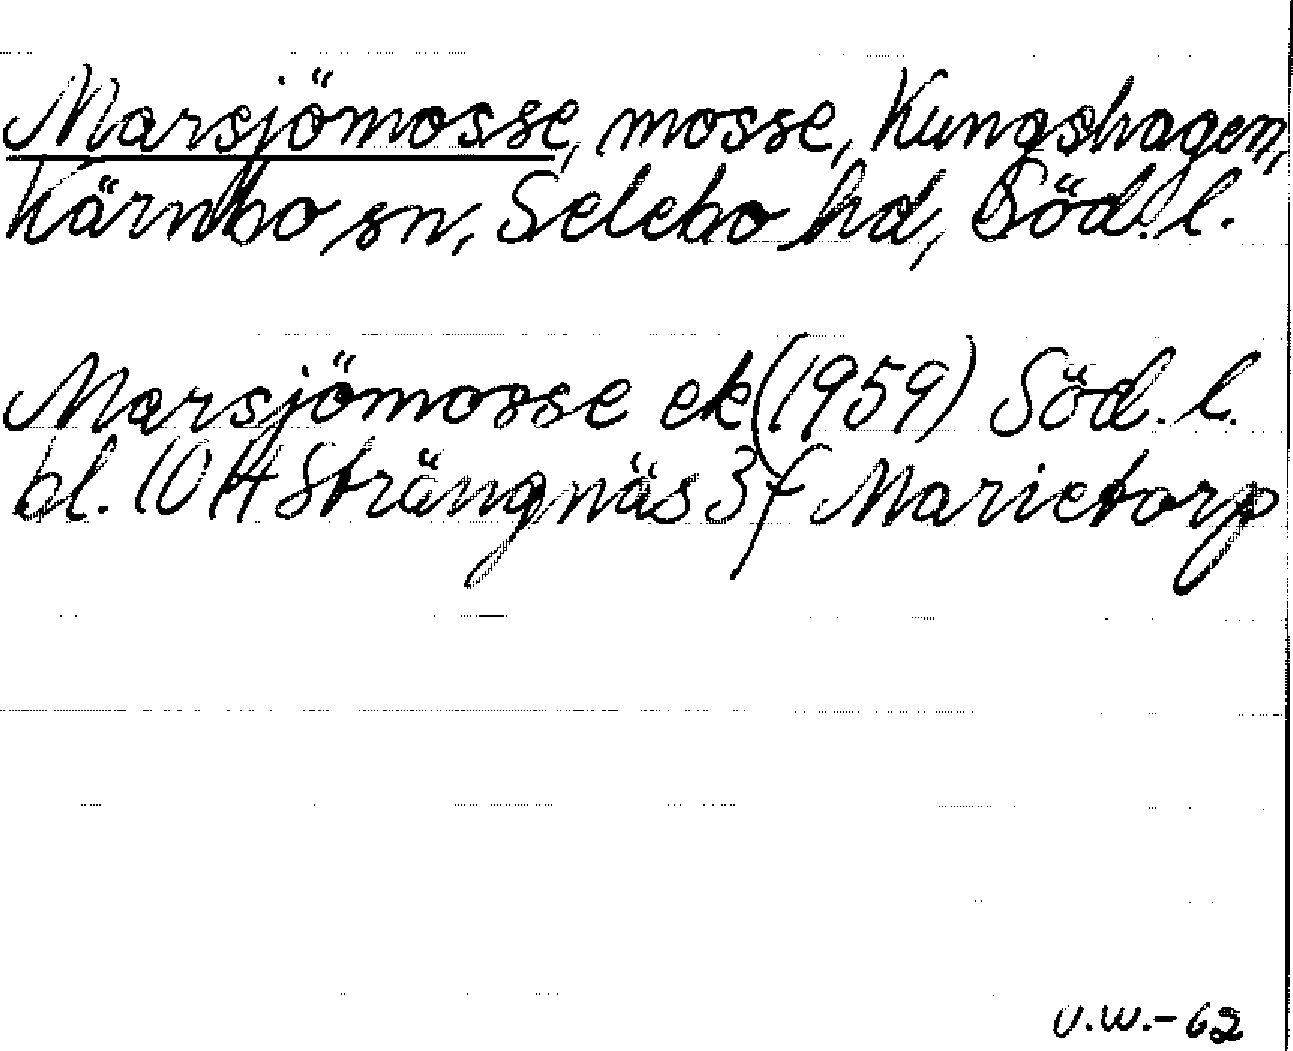 Marsjömosse, mosse, Kungshagen,
Kärnbo sn, Selebo hd, Söd. l.
Marsjömosse ek (1959) Söd. l.
bl. 10 H Strängnäs 3 f Marietorp
U.W.-62